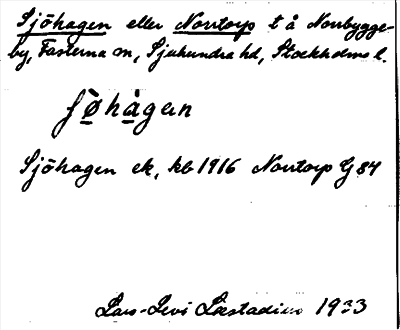 Sjöhagen eller Norrtorp t å Norrbygge-
by, Fasterna sn, Sjuhundra hd, Stockholms l.
ʃö̀hàgen
Sjöhagen ek, kb 1916 Norrtorp G 84
Lars-Levi Læstadius 1933